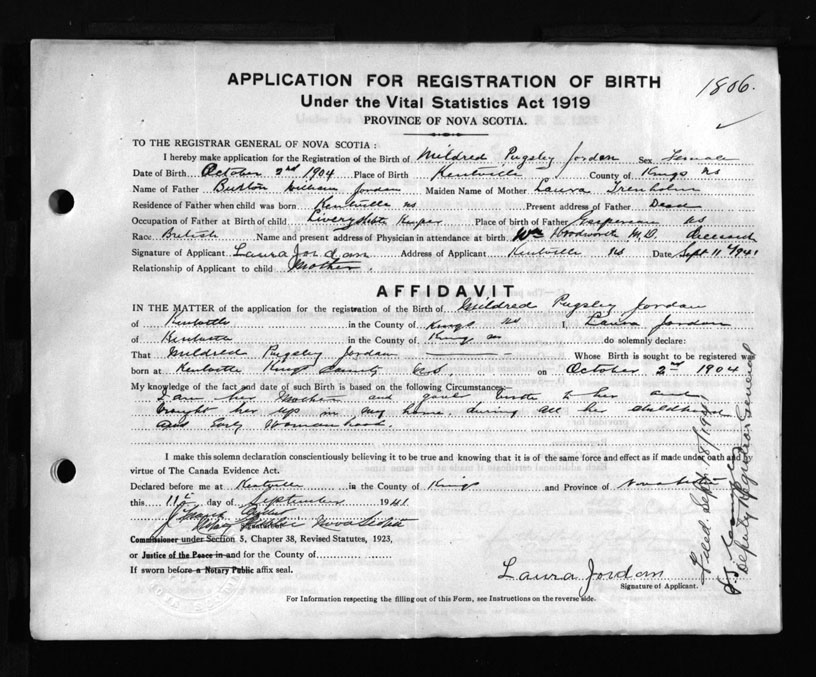 APPLICATION FOR REGISTRATION OF BIRTH
1806.
Under the Vital Statistics Act 1919
PROVINCE OF NOVA SCOTIA.
TO THE REGISTRAR GENERAL OF NOVA SCOTIA :
I hereby make application for the Registration of the Birth of Mildred Pugsley Jordan Sex Female
Date of Birth October 2nd 1904 Place of Birth Kentville County of Kings NS
Name of Father Burton William Jordan Maiden Name of Mother Laura Trenholm
Residence of Father when child was born Kentville NS Present address of Father Dead
Occupation of Father at Birth of child Livery Stable Keeper Place of birth of Father Gaspereau NS
Race British Name and present address of Physician in attendance at birth Wm Woodworth M.D. deceased
Signature of Applicant Laura Jordan Address of Applicant Kentville NS Date Sept 11th 1941
Relationship of Applicant to child Mother.
AFFIDAVIT
IN THE MATTER of the application for the registration of the Birth of Mildred Pugsley Jordan
of Kentville in the County of Kings NS I, Laura Jordan
of Kentville in the County of Kings NS do solemnly declare:
That Mildred Pugsley Jordan Whose Birth is sought to be registered was
born at Kentville Kings County N.S. on October 2nd 1904
My knowledge of the fact and date of such Birth is based on the following Circumstances:—
I am her Mother and gave birth to her and
brought her up in my home during all her childhood
and early Womanhood.
I make this solemn declaration conscientiously believing it to be true and knowing that it is of the same force and effect as if made under oath and by
virtue of The Canada Evidence Act.
Declared before me at Kentville in the County of Kings and Province of Nova Scotia
this 11th day of September 1941.
Notary Public Nova Scotia
Commissioner under Section 5, Chapter 38, Revised Statutes, 1923,
or Justice of the Peace in and for the County of
If sworn before a Notary Public affix seal.
Laura Jordan
Signature of Applicant.
For Information respecting the filling out of this Form, see Instructions on the reverse side.
Filed Sept. 18/1941
Deputy Registrar General